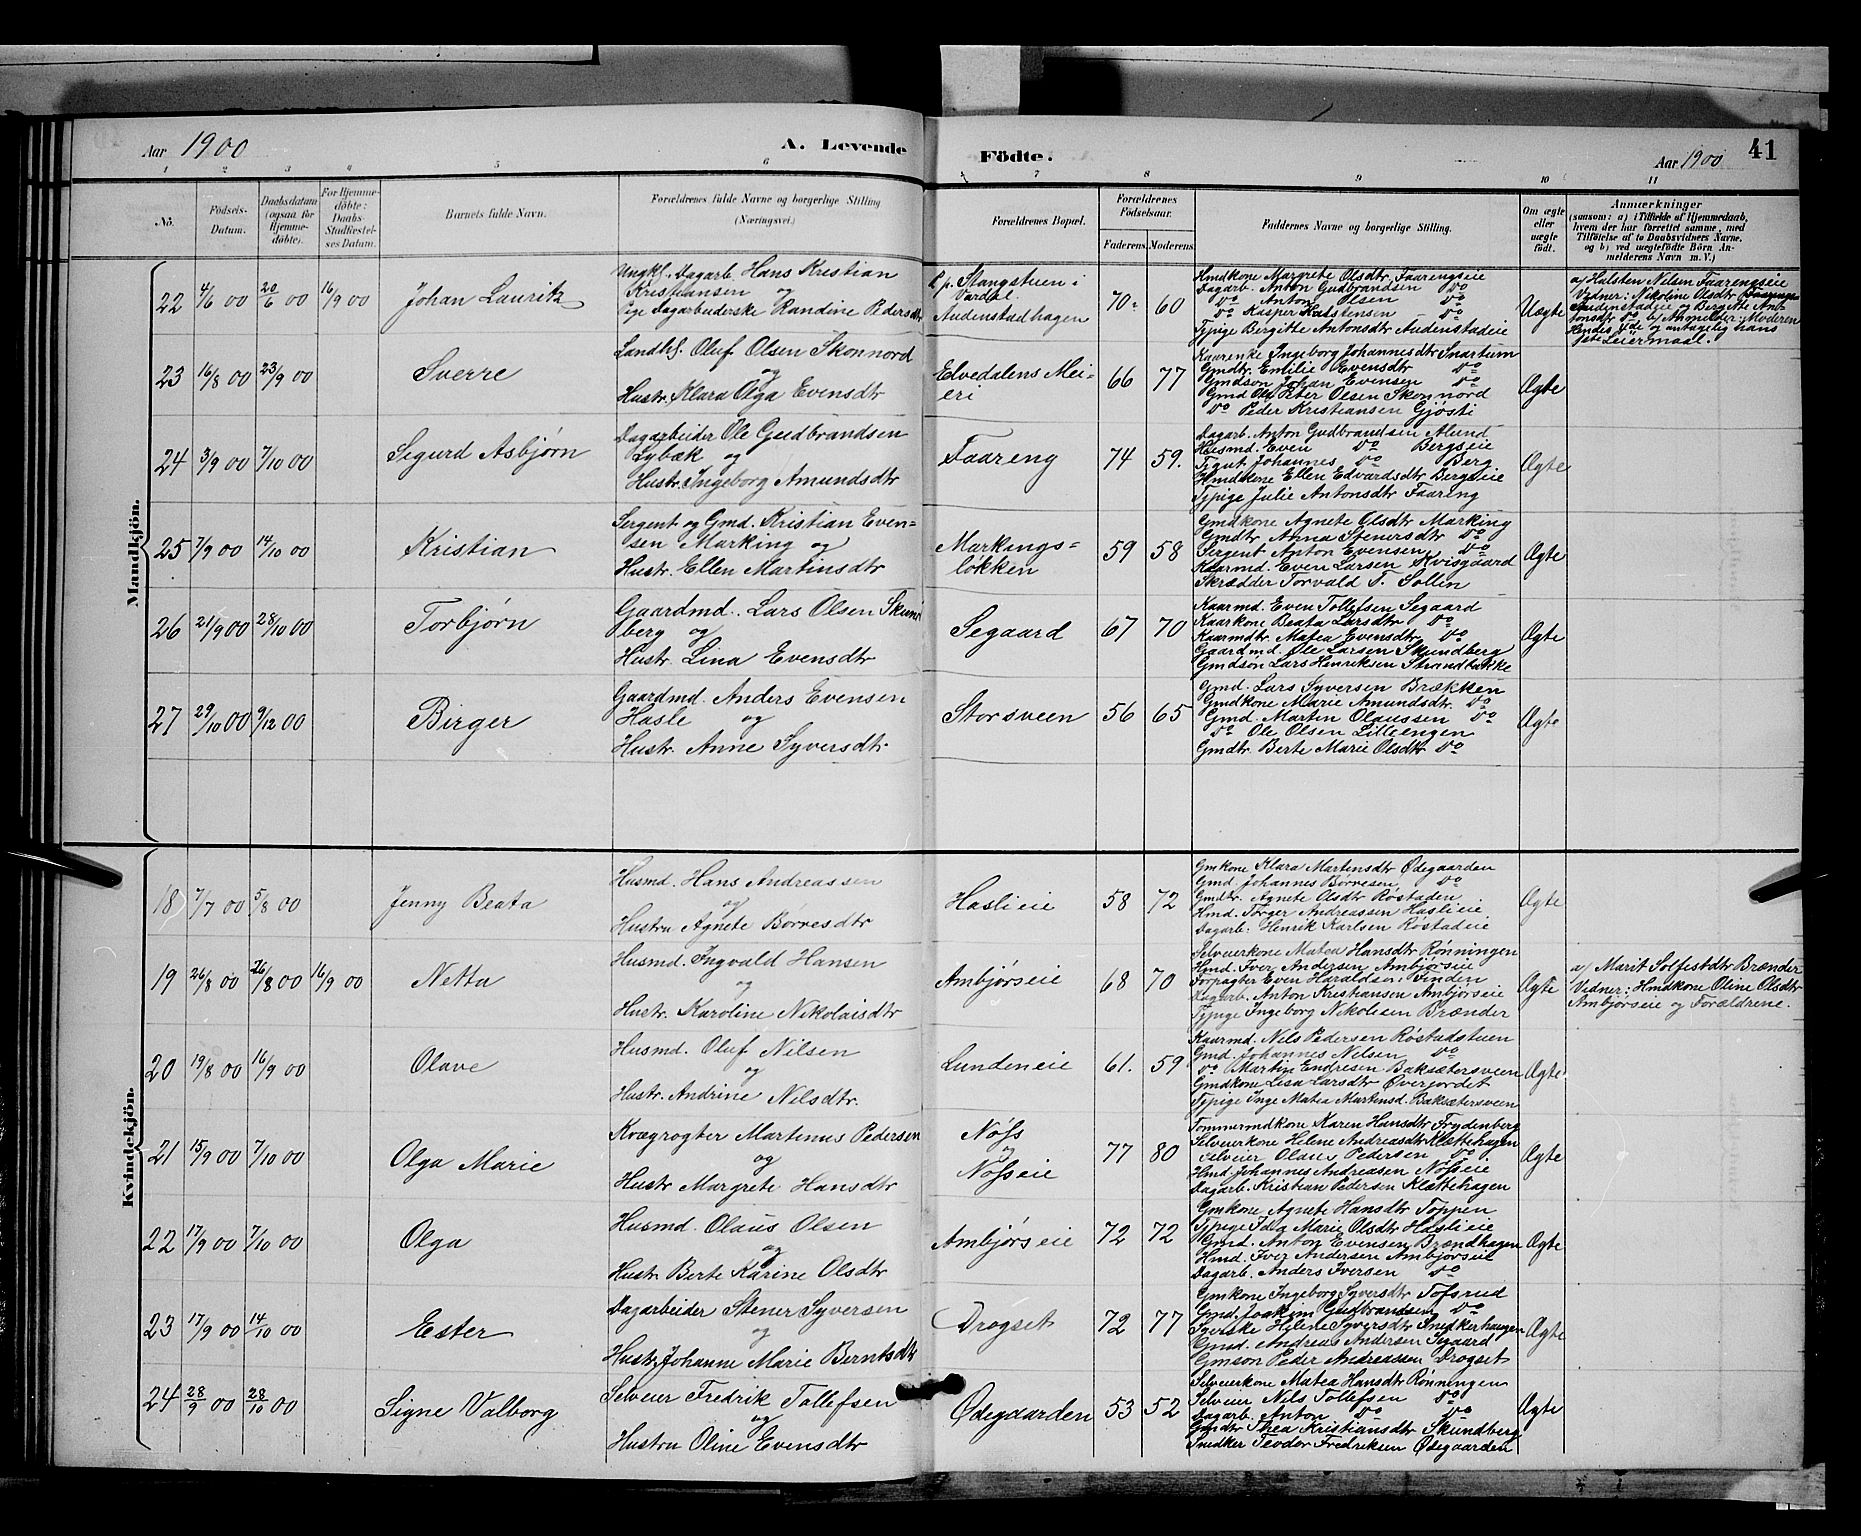 Aar 1900 A. Levende Födte. Aar 1900 41
1 2 3 4 5 6 7 8 9 10 11
No. Födsels-Datum. Daabsdatum (ogsaa for Hjemmedöbte). For Hjemmedöbte: Daabs-Stadfæstelses Datum. Barnets fulde Navn. Forældrenes fulde Navne og borgerlige Stilling (Næringsvei.) Forældrenes Bopæl. Forældrenes Födselsaar. Faderens. Moderens. Faddernes Navne og borgerlige Stilling. Om ægte eller uægte födt. Anmærkninger (saasom: a) i Tilfælde af Hjemmedaab, hvem der har forrettet samme, med Tilföielse af to Daabsvidners Navne, og b) ved uægtefödte Börn Anmelderens Navn m. V.)
Mandkjön.
22 4/6 00 20/6 00 16/9 00 Johan Lauritz
Ungkl. Dagarb Hans Kristian
Kristiansen og
Pige Dagarbederske Randine Pedersdtr
Stangstuen i
Vardal.
Audenstadhagen
70 60
Hmdkone Margrete Olsdtr Faarengseie
Dagarb. Anton Gudbrandsen do
do Anton Olsen do
do Kasper Halstensen do
Tjpige Bergitte Antonsdtr Audenstadeie
Uægte
a/ Halsten Nilsen Faarengseie
Vidner: Nikoline Olsdtr
Audenstadeie og Bergitte Antonsdtr do b/ Anmelder: Moderen
Hendes 4de og antagelig hans
1ste Leiermaal.
23 16/8 00 23/9 00 Sverre
Landh. Oluf Olsen Skonnord
og
Hustr. Klara Olga Evensdtr
Edvedalens Meieri
66 77
Kaarenke Ingeborg Johannesdtr Snartum
Gmdtr. Emilie Evensdtr do
Gmdson Johan Evensen do
Gmd Ole Peter Olsen Skonnord
do Peder Kristiansen Gjösti
Ægte
24 3/9 00 7/10 00 Sigurd Asbjørn
Dagarbeider Ole Gudbrandsen
Lybæk og
Hustr. Ingeborg Amundsdtr
Faareng
74 59.
Dagarb. Anton Gudbrandsen Mund
Husmd. Even do Bergseie
Tjgut Johannes do Berg
Hmdkone Ellen Edvardsdtr Bergseie
Tjpige Julie Antonsdtr Faaring
Ægte
25 7/9 00 14/10 00 Kristian
Sergent og Gmd. Kristian Even=
sen Marking og
Hustr. Ellen Martinsdtr
Markings=
løkken
59 58
Gmdkone Agnete Olsdtr Marking
Gmdtr. Anna Stenersdtr do
Sergent Anton Evensen do
Kaarmd. Even Larsen Kvisgaard
Skrædder Torvald T. Sollin
Ægte
26 21/9 00 28/10 00 Torbjørn
Gaardmd. Lars Olsen Skund
berg og
Hustr. Lina Evensdtr
Segaard
67 70
Kaarmd. Even Tollefsen Segaard
Kaarkone Beata Larsdtr do
Kaarmdtr. Matea Evensdtr do
Gaardmd. Ole Larsen Skundberg
Gmdson Lars Henriksen Strandbakke
Ægte
27 29/10 00 9/12 00 Birger
Gaardmd. Anders Evensen
Hasle og
Hustr. Anne Syversdtr.
Storsveen
56 65
Gmd. Lars Syversen Brækken
Gmdkone Marie Amundsdtr. do
Gmd. Martin Olaussen do
do Ole Olsen Lilleengen
Gmdtr. Berte Marie Olsdtr do
Ægte
Kvindekjön.
18 7/7 00 5/8 00 Jenny Beata
Husmd. Hans Andreassen
og
Hustru Agnete Børresdtr
Haslieie
58 72
Gmkone Klara Martensdtr Ødegaarden
Gmd. Johannes Børresen do
Gmdtr. Agnete Olsdtr Røstaden
Hmd. Torger Andreassen Haslieie
Dagarb. Henrik Karlsen Røstadeie
Ægte
19 26/8 00 26/8 00 16/9 00 Netta
Husmd. Ingvald Hansen
og
Hustr. Karoline Nikolaisdtr
Ambjørseie
68 70
Selveierkone Matea Hansdtr Rønningen
Hmd. Iver Andersen Ambjørseie
Forpagter Even Haraldsen Linden
Dagarb. Anton Kristiansen Ambjørseie
Tjpige Ingeborg Nikolisen Brænder
Ægte
a/ Marit Solfestdtr Brænder
Vidner: Hmdkone Oline Olsdtr
Ambjørseie og Forældrene.
20 19/8 00 16/9 00 Olave
Husmd. Oluf Nilsen
og
Hustr. Andrine Nilsdtr.
Lundeneie
61. 59
Kaarmd. Nils Pedersen Røstadstuen
Gmd. Johannes Nelsen do
do Martin Endresen Baksætersveen
Gmdkone Lisa Larsdtr Øverjordet
Tjpige Inge Matea Martinsd. Baksætersveen
Ægte
21 15/9 00 7/10 00 Olga Marie
Kvægrøgter Martenus Pedersen
og
Hustr Margrete Hansdtr
Nøss
og
Nøsseie
77 80
Tømmermdkone Karen Hansdtr Frydenberg
Selveierkone Helene Andreasdtr Klættehagen
Selveier Olaus Pedersen do
Hmd. Johannes Andreasen Nøsseie
Dagarb. Kristian Pedersen Klættehagen
Ægte
22 17/9 00 7/10 00 Olga
Husmd. Olaus Olsen
og
Hustr Berte Karine Olsdtr
Ambjørseie
72 72
Gmkone Agnete Hansdtr Toppen
Tjpige Ida Marie Olsdtr Haslieie
Gmd. Anton Evensen Brændhagen
Hmd. Iver Andersen Ambjørseie
Dagarb. Anders Iversen do
Ægte
23 17/9 00 14/10 00 Ester
Dagarbeider Stener Syversen
og
Hustr. Johanne Marie Berntsdtr
Drogset
72 77
Gmkone Ingeborg Syversdtr Tofsrud
Gmd. Joakim Gudbrandsen do
Syerske Helene Syversdtr Snedkerhaugen
Gmd. Andreas Andersen Sygaard
Gmson Peder Andreassen Drogset
Ægte
24 28/9 00 28/10 00 Signe Valborg
Selveier Fredrik Tollefsen
og
Hustru Oline Evensdtr
Ødegaarden
53 52
Selveierkone Matea Hansdtr Rønningen
Selveier Nils Tollefsen do
Dagarb. Anton do do
Gmdtr Thea Kristiansdtr Skundberg
Snedker Teodor Fredriksen Ødegaarden
Ægte